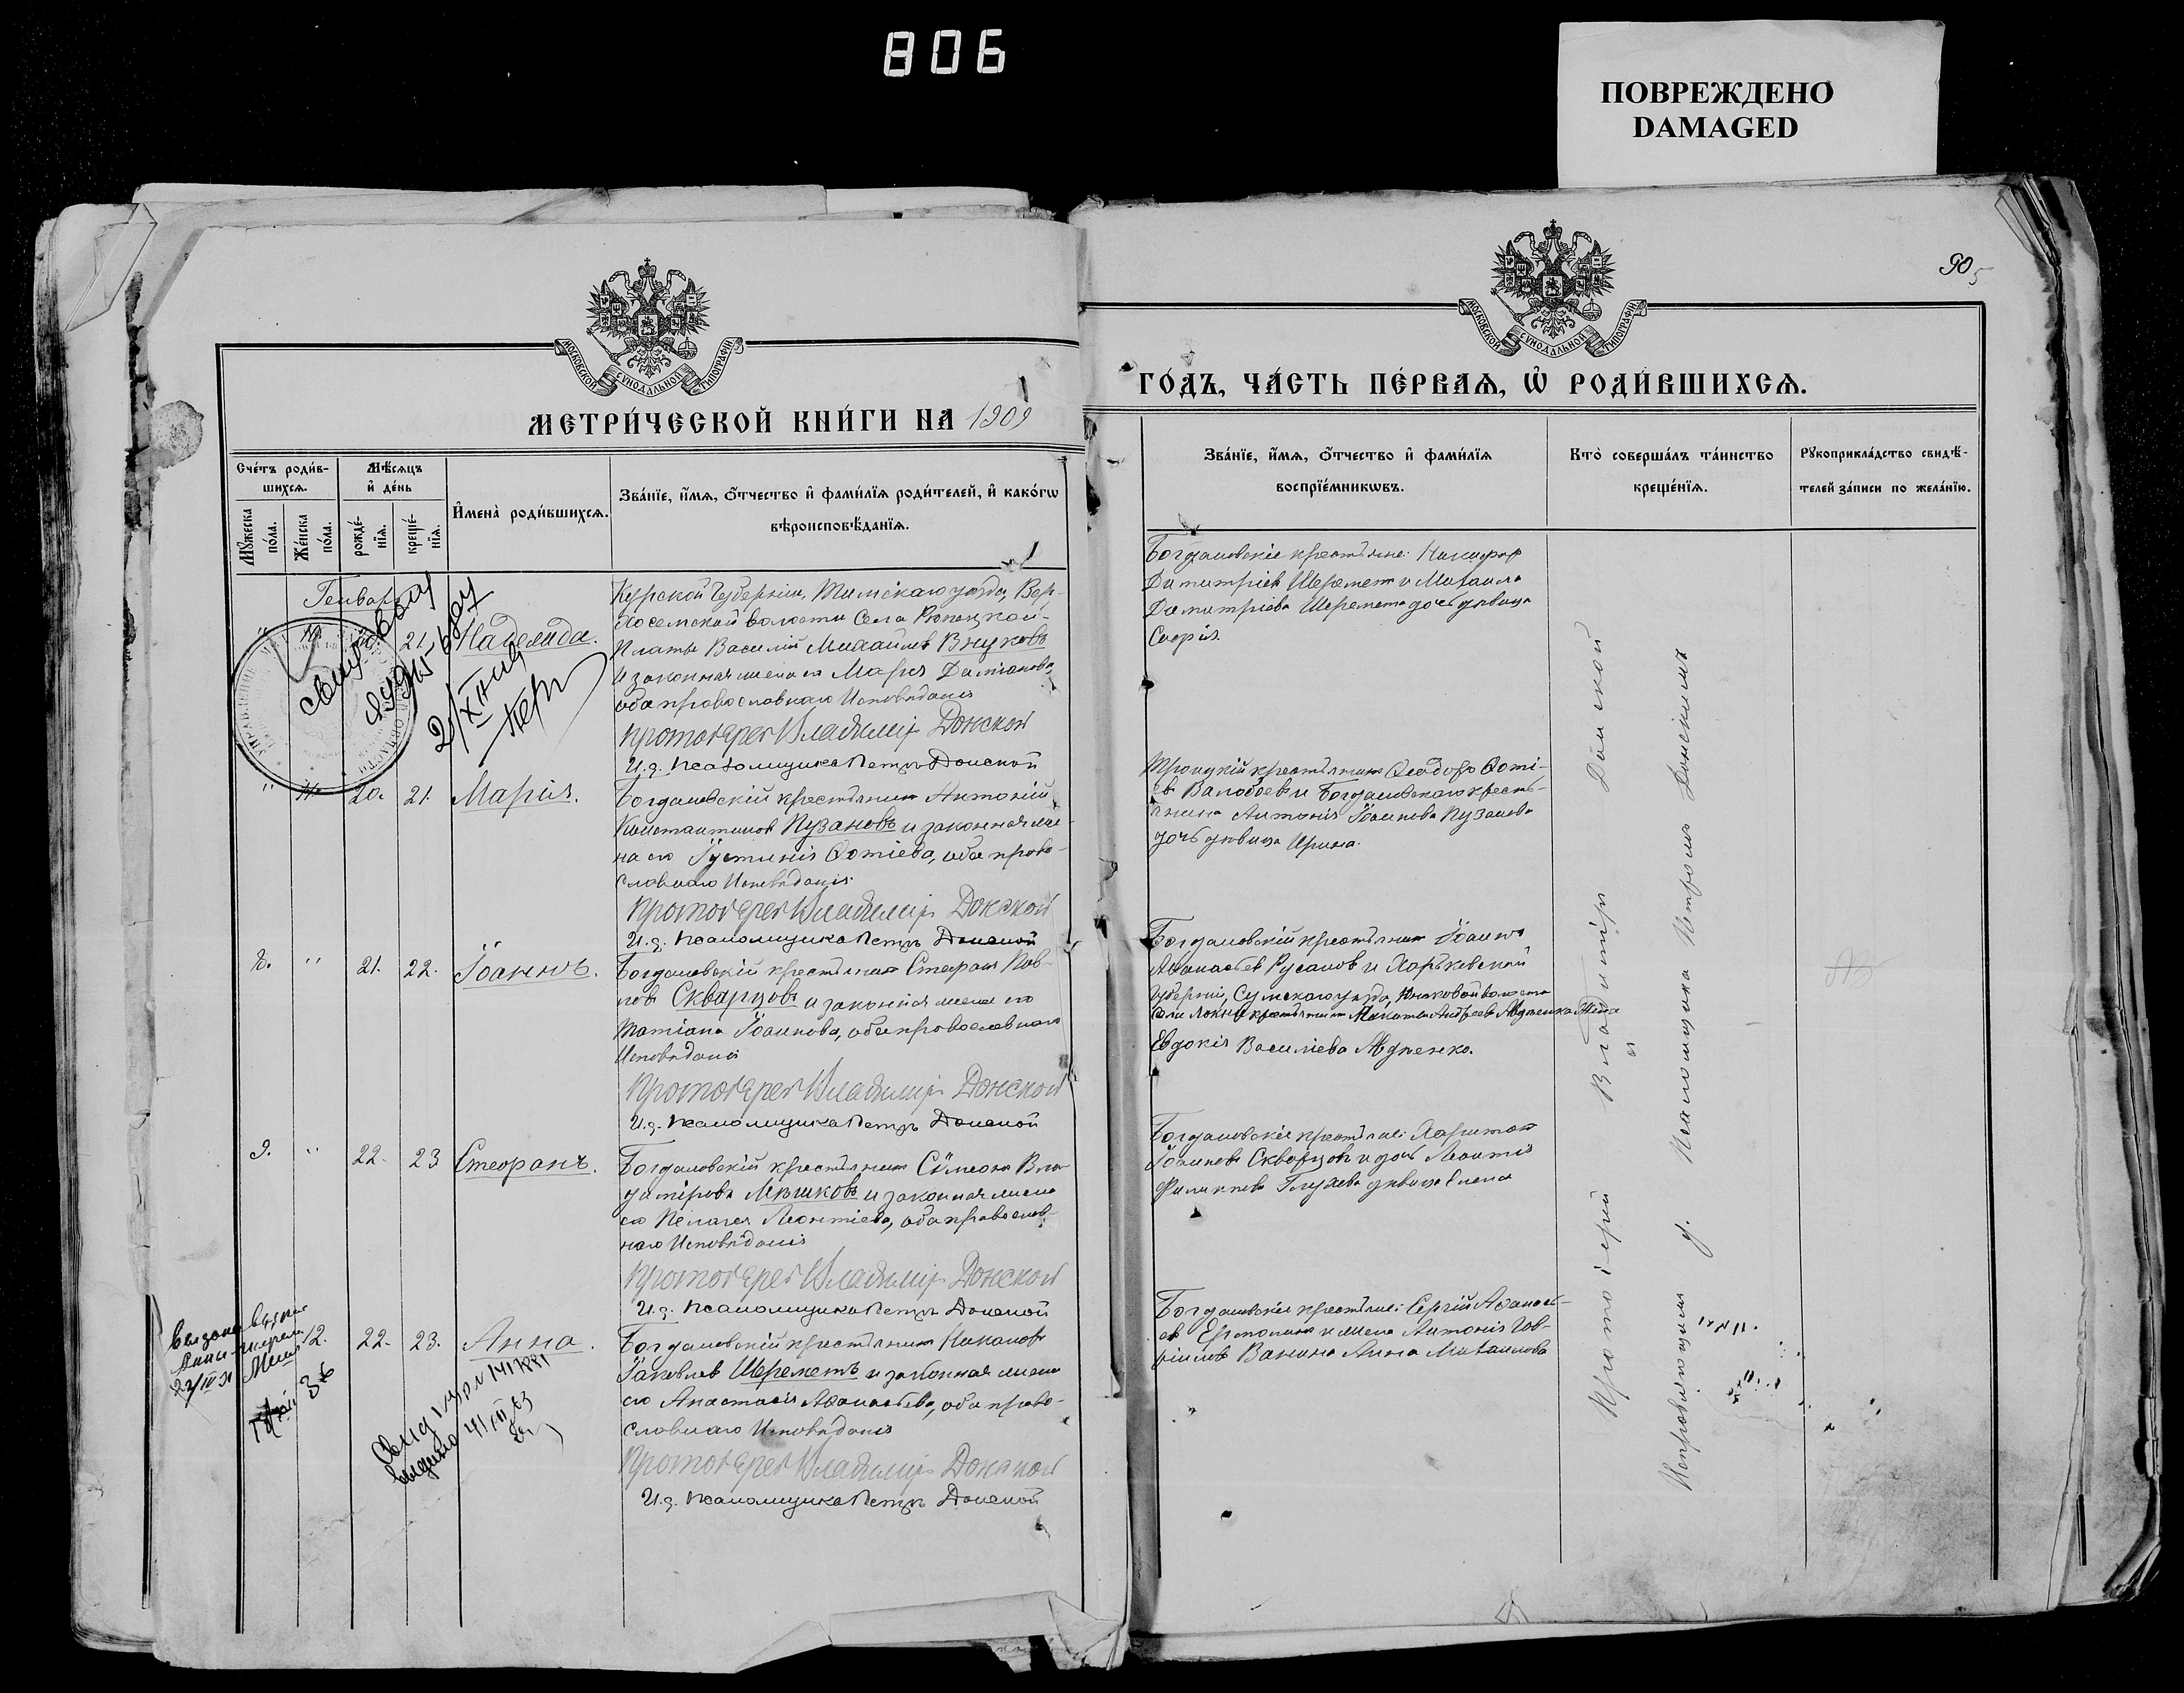 806
ПОВРЕЖДЕНО
DAMAGED
905
МОСКОВСКОЙ СѴНОДАЛЬНОЙ ТИПОГРАФІИ
МОСКОВСКОЙ СѴНОДАЛЬНОЙ ТИПОГРАФІИ
МЕТРИ́ЧЕСКОЙ КНИ́ГИ НА 1909
ГО́ДЪ, ЧА́СТЬ ПЕ́РВАѦ, Ѡ РОДИ́ВШИХСѦ.
Сче́тъ роди́в-
шихсѧ.
Мꙋжеска по́ла.
Же́нска по́ла.
Мѣсѧцъ
и҆ де́нь
рожде́-
нїѧ.
креще́-
нїѧ.
И҆мена̀ роди́вшихсѧ.
Зва́нїе, и҆́мѧ, ѻ҆́тчество и҆ фами́лїѧ роди́телей, и҆ како́гѡ
вѣроисповѣ́данїѧ.
Зва́нїе, и҆́мѧ, ѻ҆́тчество и҆ фами́лїѧ
воспрїе́мникѡвъ.
Кто̀ соверша́лъ та́инство
креще́нїѧ.
Рꙋкоприкла́дство свидѣ́-
телей за́писи по жела́нїю.
Генварь
21. Надежда.
Курской Губерніи, Тимскаго уѣзда, Вер-
Платы Василій Михайловъ Внуковъ
и законная жена его Марія Даміанова,
оба православнаго Исповѣданія
Протоіерей Владиміръ Донской
И. д. Псаломщика Петръ Донской
Богдановскіе крестьяне: Никифоръ
Димитріевъ Шереметъ и Михаила
Димитріева Шеремета дочь дѣвица
Софія.
" 11. 20. 21. Марія.
Богдановскій крестьянинъ Антоній
Константиновъ Пузановъ и законная же-
на его Іустинія Фотіева, оба право-
славнаго Исповѣданія.
Протоіерей Владиміръ Донской
И. д. Псаломщика Петръ Донской
Троицкій крестьянинъ Ѳеодоръ Фоті-
евъ и Богдановскаго кресть-
янина Антонія Іоаннова Пузанова
дочь дѣвица Ирина.
8. " 21. 22. Іоаннъ.
Богдановскій крестьянинъ Стефанъ Пав-
ловъ Скварцовъ и законная жена его
Татіана Іоаннова, оба православнаго
Исповѣданія
Протоіерей Владиміръ Донской
И. д. Псаломщика Петръ Донской
Богдановскій крестьянинъ Іоаннъ
Аѳанасьевъ Русановъ и Харьковской
Губерніи, Сумскаго уѣзда, Юнаковой волости
Евдокія Василіева
9. " 22. 23 Стефанъ.
Богдановскій крестьянинъ Сѵмеонъ Вла-
диміровъ Мѣшковъ и законная жена
его Пелагея Леонтіева, оба православ-
наго Исповѣданія
Протоіерей Владиміръ Донской
И. д. Псаломщика Петръ Донской
Богдановскіе крестьяне: Харитонъ
Іоанновъ Скварцовъ и дочь Леонтія
Филиппова Глухова дѣвица Елена
12. 22. 23. Анна.
Богдановскій крестьянинъ Никаноръ
Іаковлевъ Шереметъ и законная жена
его Анастасія Аѳанасьева, оба право-
славнаго Исповѣданія
Протоіерей Владиміръ Донской
И. д. Псаломщика Петръ Донской
Богдановскіе крестьяне: Сергій Аѳанась-
евъ Ермолинъ и жена Антонія Гав-
ріилова Ванина Анна Михаилова
Протоіерей Владиміръ Донской
съ
Исправляющимъ д. Псаломщика Петромъ Донскимъ